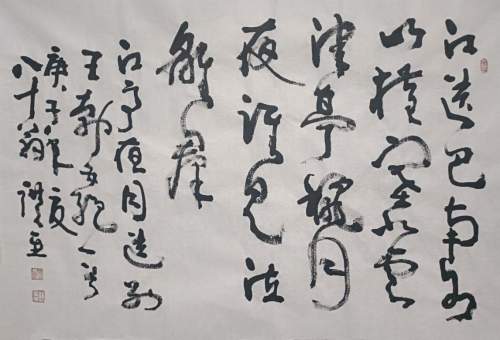 江送巴南水
山橫塞北雲
津亭穐月
夜誰見泣
離群
江亭夜月送别
王勃五絶一首
庚子年夏
八十翁